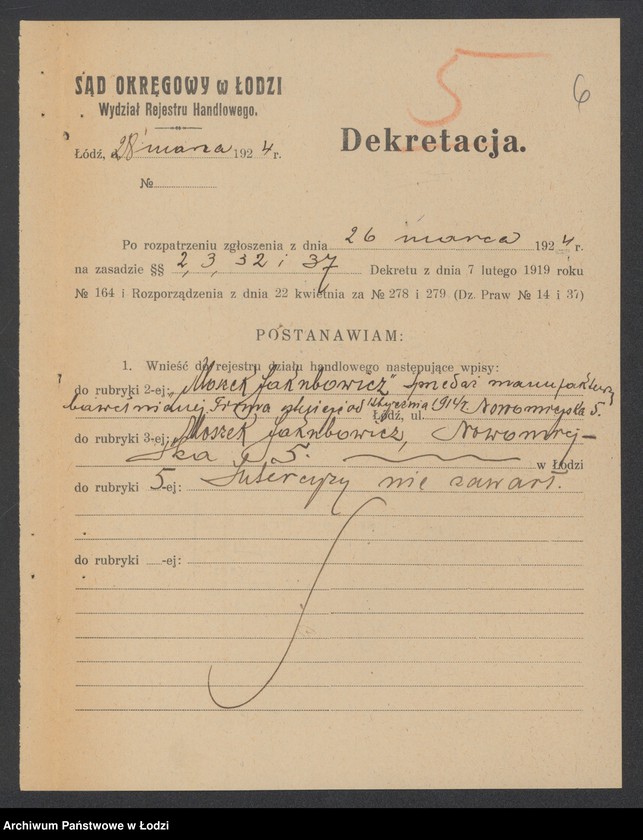 5
6
SĄD OKRĘGOWY w ŁODZI
Wydział Rejestru Handlowego.
Łódź, d. 28 marca 1924 r.
Dekretacja.
№
Po rozpatrzeniu zgłoszenia z dnia 26 marca 1924 r.
na zasadzie §§ 2, 3, 32 i 37 Dekretu z dnia 7 lutego 1919 roku
№ 164 i Rozporządzenia z dnia 22 kwietnia za № 278 i 279 (Dz. Praw № 14 i 37)
POSTANAWIAM:
1. Wnieść do rejestru działu handlowego następujące wpisy:
do rubryki 2-ej: „Moszek Jakubowicz" sprzedaż manufaktury
bawełnianej. Firma istnieje od stycznia 1914 r. Nowomiejska 5.
Łódź, ul.
do rubryki 3-ej: Moszek Jakubowicz, Nowomiej-
ska 5. w Łodzi
do rubryki 5-ej: Intercyzy nie zawarł.
do rubryki -ej:
Archiwum Państwowe w Łodzi